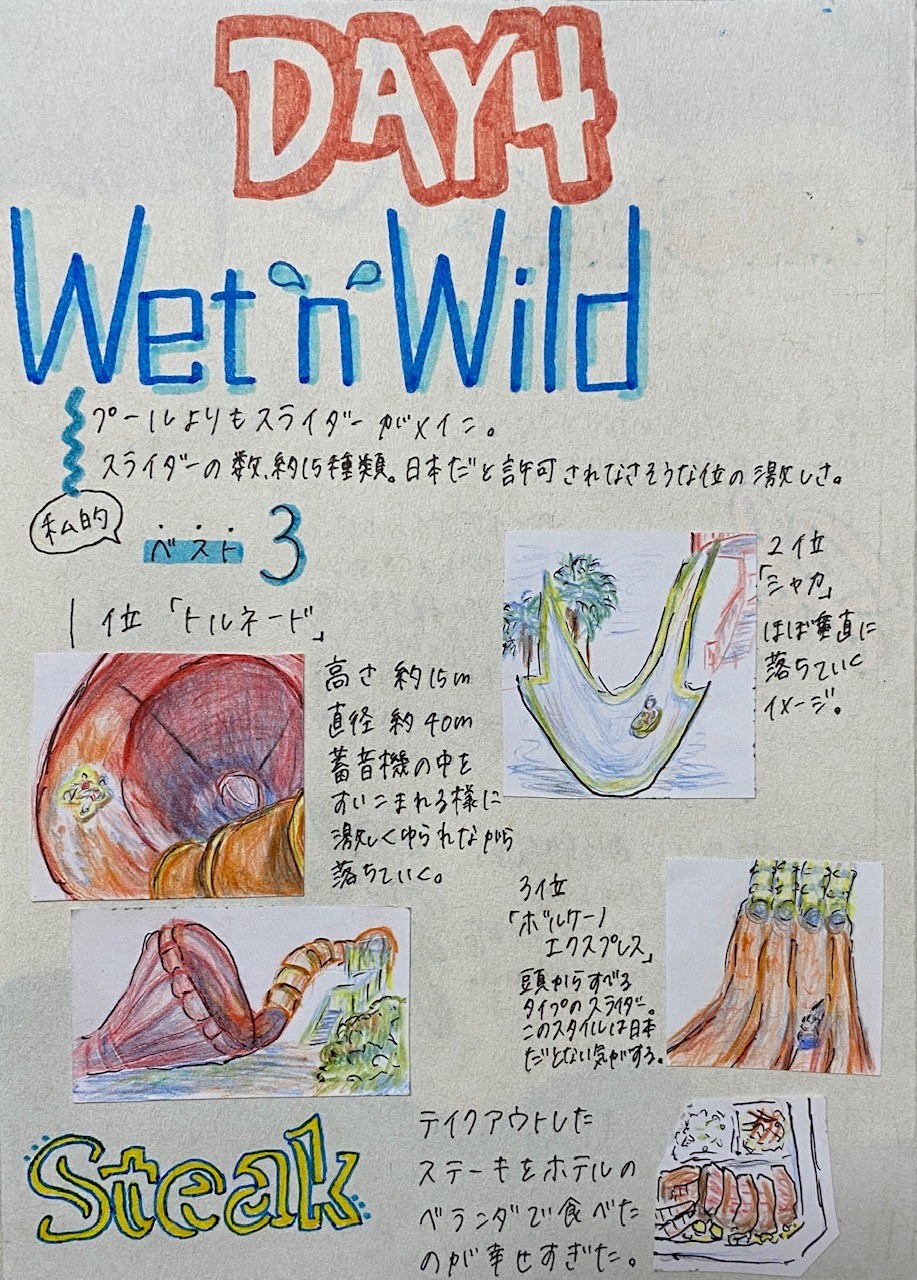 DAY4
Wet'n'Wild
プールよりもスライダーがメイン。
スライダーの数、約15種類。日本だと許可されなさそうな位の激しさ。
私的
ベスト3
1位「トルネード」
高さ 約15m
直径 約40m
蓄音機の中を
すいこまれる様に
激しくゆられながら
落ちていく。
2位
「シャカ」
ほぼ垂直に
落ちていく
イメージ。
3位
「ボルケーノ
エクスプレス」
頭からすべる
タイプのスライダー。
このスタイルは日本
だとない気がする。
Steak
テイクアウトした
ステーキをホテルの
ベランダで食べた
のが幸せすぎた。